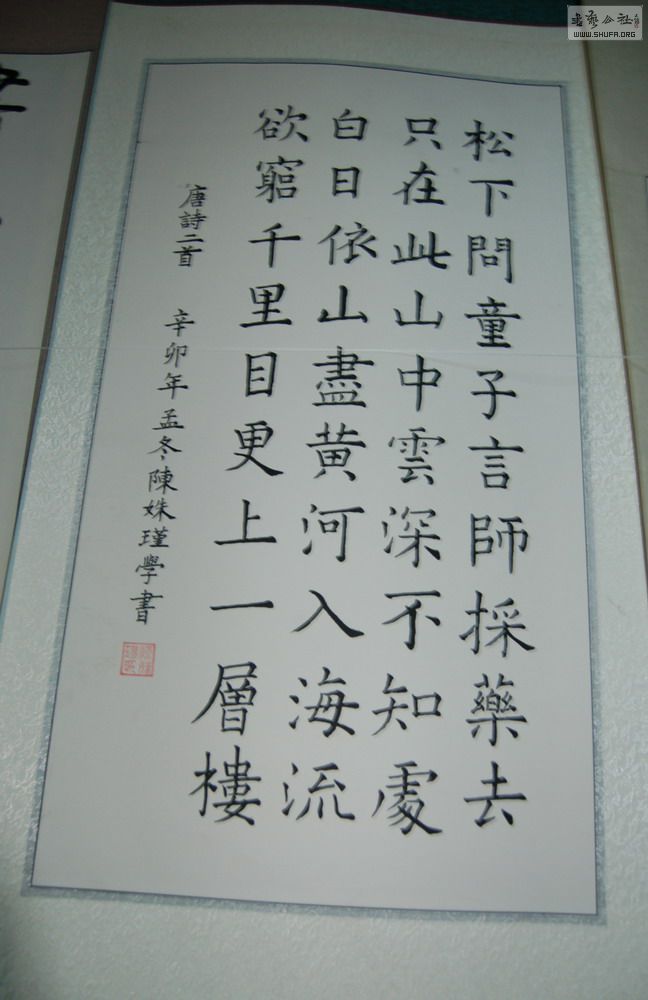 松下問童子言師採藥去
只在此山中雲深不知處
白日依山盡黃河入海流
欲窮千里目更上一層樓
唐詩二首 辛卯年孟冬陳姝瑾學書
書藝公社
WWW.SHUFA.ORG